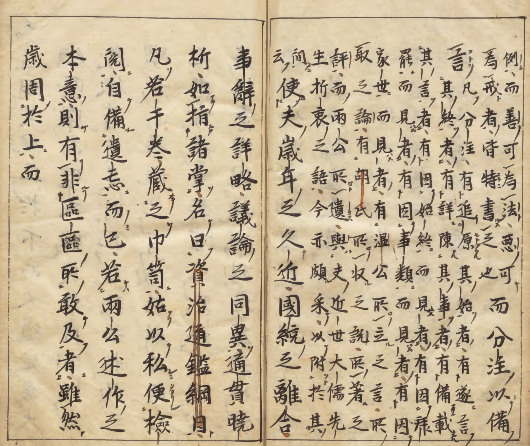 例而善可為法惡可
為戒者皆特書之也
而分注以備
言
凡分注有追原其始者有遂言
其終者有詳陳其事者有備載
其言者有因始終而見者有因拜
罷而見者有因事類而見者有因
家世而見者有温公所立之言所
取之論有胡氏所收之説所著之
評而兩公所遺與夫近世大儒先
生折衷之語今亦頗采以附於其
間
云
使夫歲年之久近國統之離合
事辭之詳略議論之同異通貫曉
析如指諸掌名曰資治通鑑綱目
凡若干卷藏之巾笥姑以私便檢
閲自備遺忘而已若兩公述作之
本意則有非區區所敢及者雖然
歲周於上而